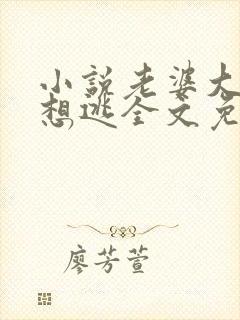 小说老婆大
想逃全文免
廖芳萱